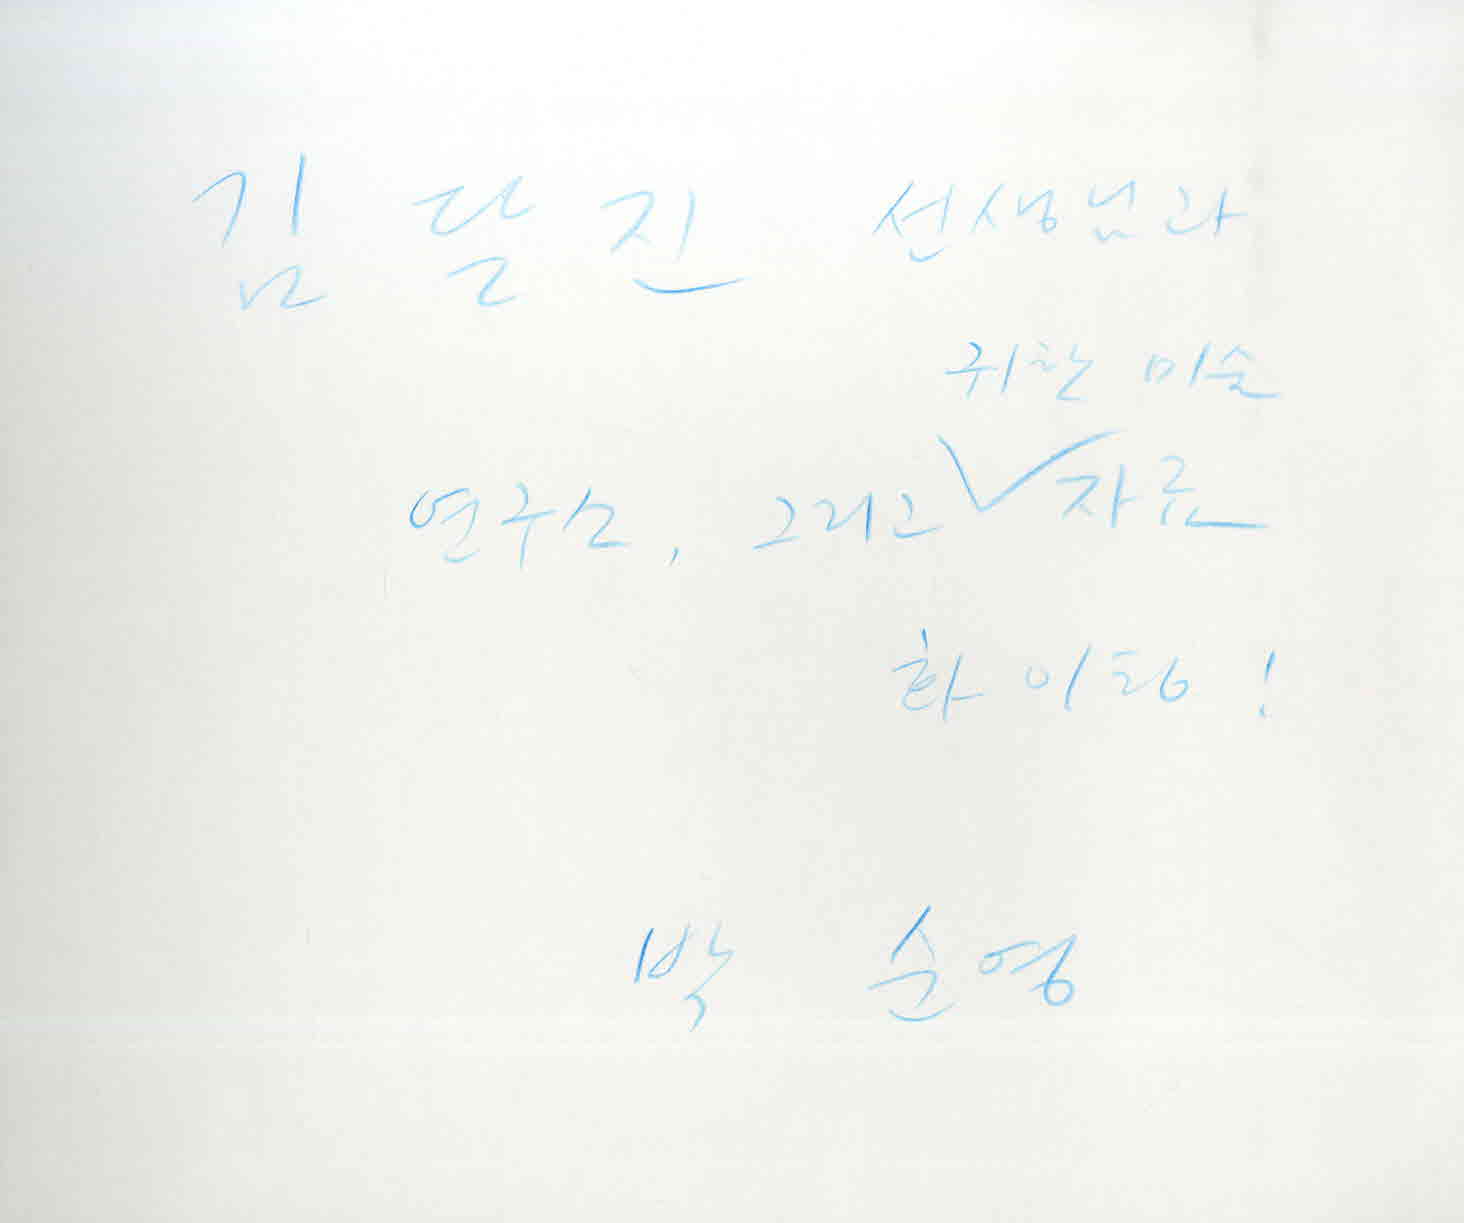 김달진 선생님과
귀한 미술
연구소, 그리고 ✓ 자료
화이팅!
박 순영